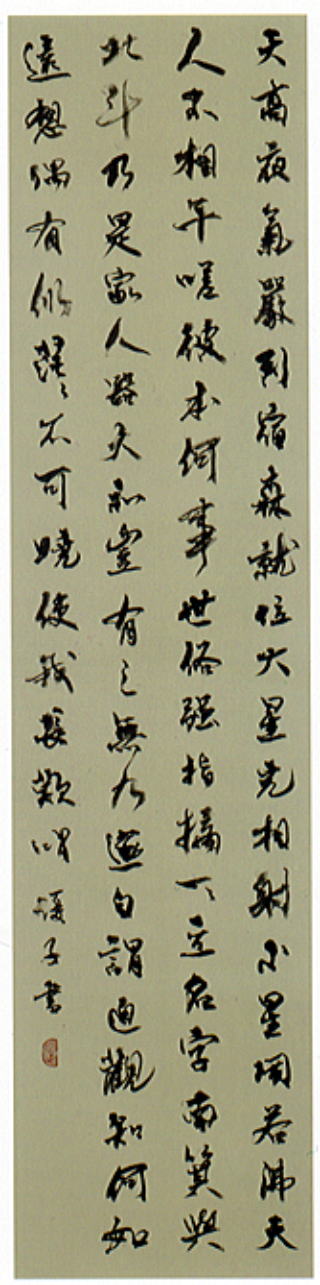 天高夜氣嚴列宿森就位大星光相射小星鬧若沸天
人不相干嗟彼本何事世俗强指摘一一立名字南箕與
北斗乃是家人器天亦豈有之無乃遂自謂迫觀知何如
遠想偶有似茫茫不可曉使我長歎喟 子書